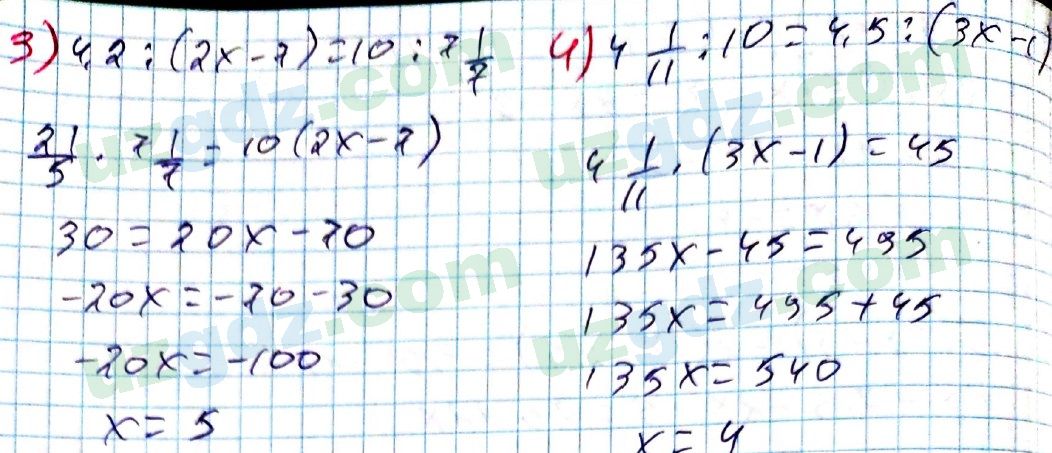 3) 4,2 : (2x-7)=10 : 7 1/7
21/5 · 7 1/7 = 10(2x-7)
30 = 20x-70
-20x = -70-30
-20x = -100
x = 5
4) 4 1/11 : 10 = 4,5 : (3x-1)
4 1/11 · (3x-1) = 45
135x - 45 = 495
135x = 495+45
135x = 540
x = 4
uzgdz.com
uzgdz.com
uzgdz.com
uzgdz.com